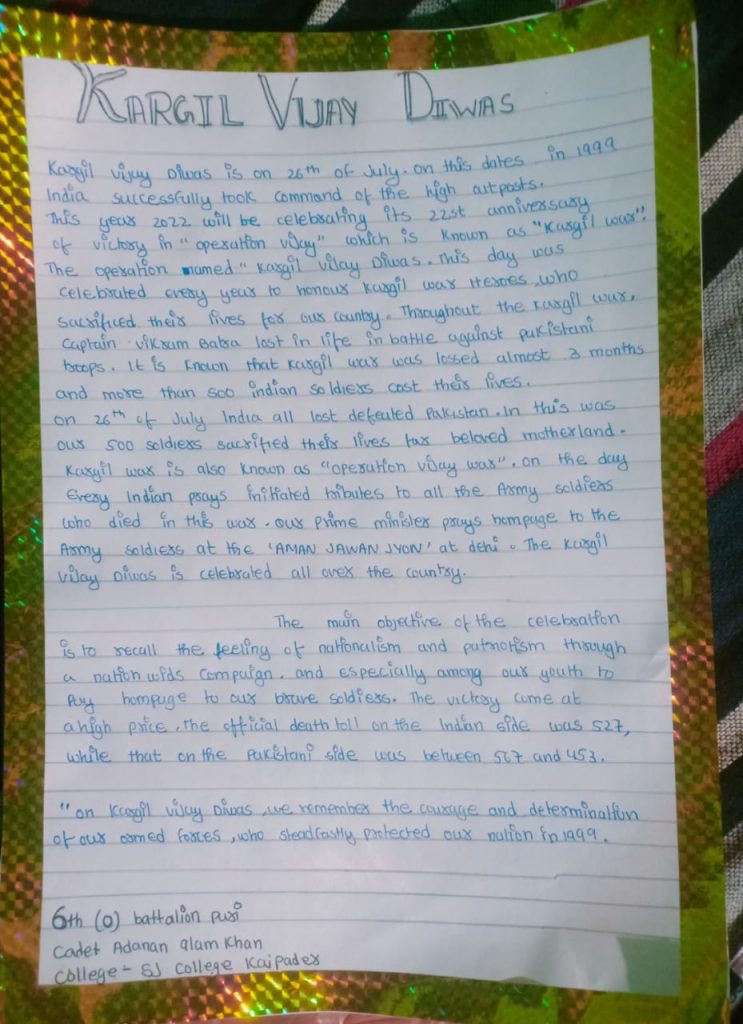 KARGIL VIJAY DIWAS
Kargil vijay Diwas is on 26th of July. on this dates in 1999
India successfully took command of the high outposts.
This year 2022 will be celebrating its 22st anniversary
of victory in "operation vijay" which is known as "Kargil war".
The operation named "Kargil vijay Diwas. This day was
celebrated every year to honour Kargil war Heroes, who
sacrificed their lives for our country. Throughout the Kargil war,
captain vikram Batra lost in life in battle against pakistani
troops. It is known that Kargil war was lossed almost 3 months
and more than 500 indian soldiers cost their lives.
on 26th of July India all lost defeated Pakistan. In this was
our 500 soldiers sacrified their lives for beloved motherland.
Kargil war is also known as "operation vijay war". on the day
Every Indian prays initiated tributes to all the Army soldiers
who died in this war. our prime minister prays hompage to the
Army soldiers at the 'AMAN JAWAN JYON' at dehi. The Kargil
vijay Diwas is celebrated all over the country.
The main objective of the celebration
is to recall the feeling of nationalism and patriotism through
a nation wids campaign. and especially among our youth to
Pay hompage to our brave soldiers. The victory came at
a high price, the official death toll on the Indian side was 527,
while that on the Pakistani side was between 567 and 453.
"on Kargil vijay Diwas, we remember the courage and determination
of our armed forces, who steadfastly protected our nation in 1999.
6th (O) battalion puri
Cadet Adanan alam Khan
College - SJ College Kaipader